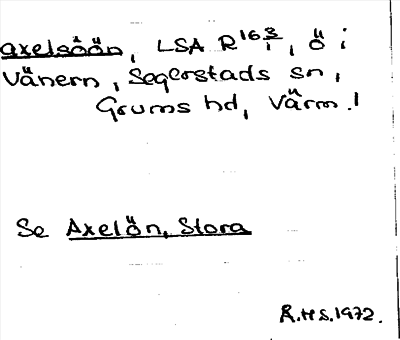 axelsöön, LSA R 163/1, ö i
Vänern, Segerstads sn,
Grums hd, Värm. l
Se Axelön, Stora
R.H S. 1972.